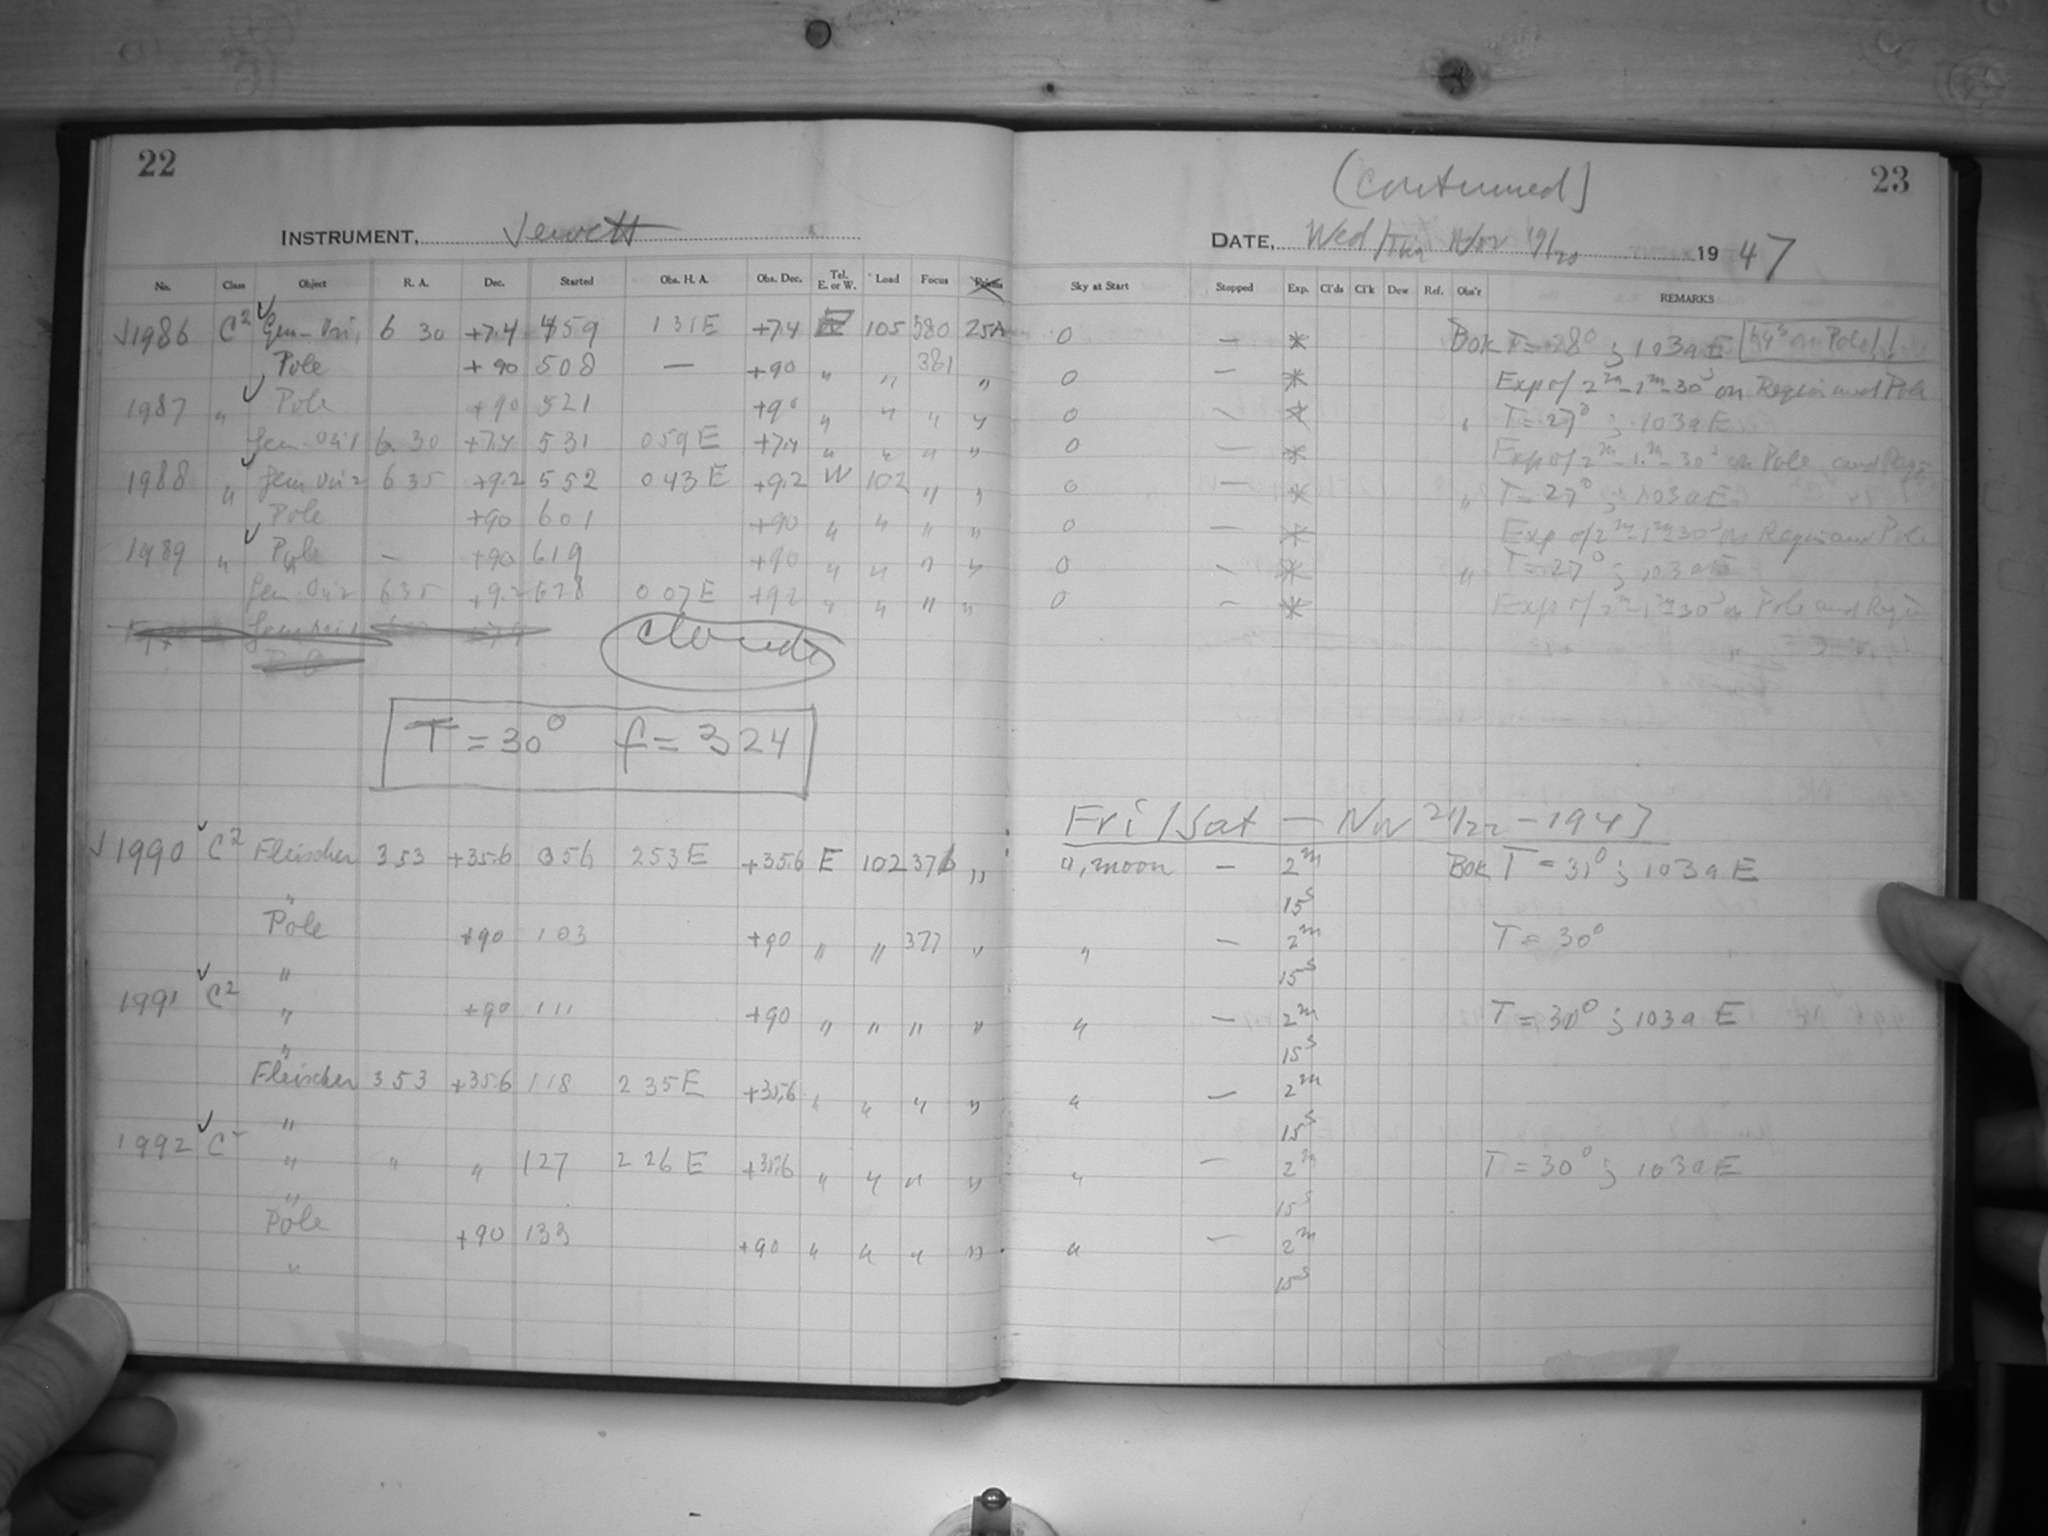 22
(continued)
23
INSTRUMENT, Jewett
DATE, Wed/Thu Nov 19/20 1947
No. Class Object R. A. Dec. Started Obs. H. A. Obs. Dec. Tel. E. or W. Load Focus Prisms Sky at Start Stopped Exp. Cl'ds Cl'k Dew Ref. Obs'r REMARKS
√1986 C2 Gem-Ori, 6 30 +7.4 459 1 31 E +7.4 105 580 25A 0 — * Bok T = 28° ; 103a E on Pole!!
Pole +90 508 — +90 " " 381 " 0 — * Exp of 2m-1m-30s on Region and Pole
1987 " Pole +90 521 +90 " " " " 0 — * " T = 27° ; 103a E
Gem Ori 1 6 30 +7.4 531 0 59 E +7.4 " " " " 0 — * Exp of 2m-1m-30s on Pole and Reg
1988 " Gem Ori 2 6 35 +9.2 552 0 43 E +9.2 W 102 " " 0 — * " T = 27° ; 103a E
Pole +90 601 +90 " " " " 0 — * Exp of 2m-1m-30s on Region and Pole
1989 " Pole — +90 619 +90 " " " " 0 — * " T = 27° ; 103a E
Gem Ori 2 6 35 +9.2 628 0 07 E +9.2 " " " " 0 — * Exp of 2m-1m-30s on Pole and Region
Clouds
T = 30° f = 324
Fri/Sat — Nov 21/22 - 1947
√1990 C2 Fleischer 3 53 +35.6 056 2 53 E +35.6 E 102 376 " ", moon — 2m Bok T = 31° ; 103a E
" 15s
Pole +90 103 +90 " " 377 " " — 2m T = 30°
" 15s
1991 C2 " +90 111 +90 " " " " " — 2m T = 30° ; 103a E
" 15s
Fleischer 3 53 +35.6 118 2 35 E +35.6 " " " " " — 2m
" 15s
1992 C " " " 127 2 26 E +35.6 " " " " " — 2m T = 30° ; 103a E
" 15s
Pole +90 133 +90 " " " " " — 2m
" 15s